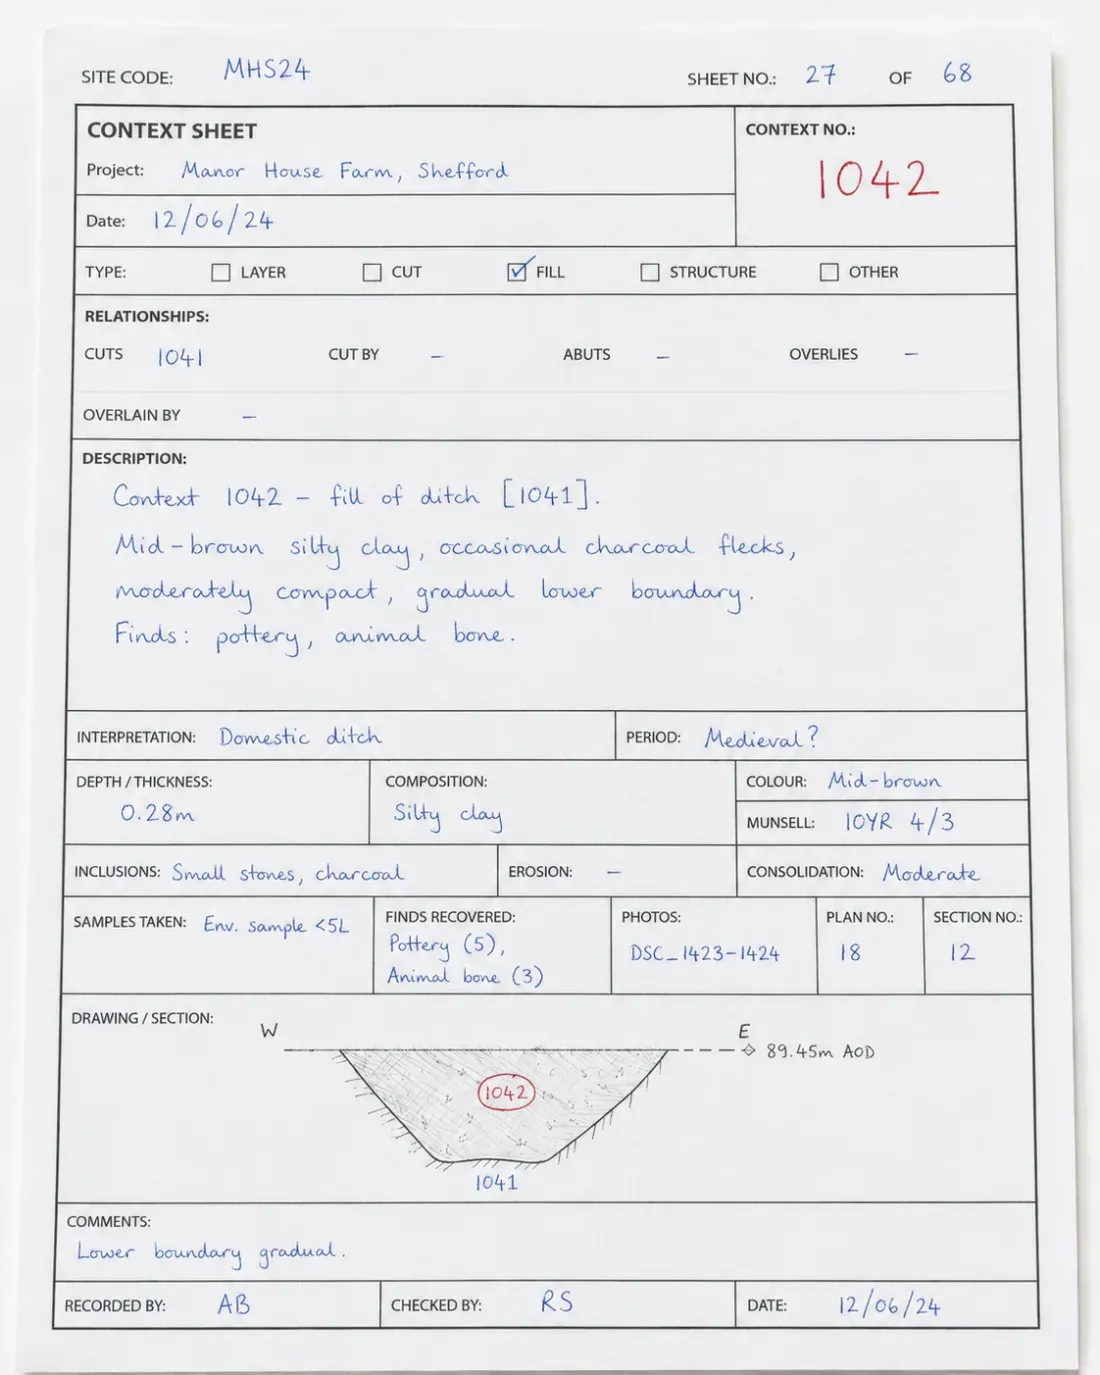 SITE CODE: MHS24 SHEET NO.: 27 OF 68
CONTEXT SHEET
CONTEXT NO.:
1042
Project: Manor House Farm, Shefford
Date: 12/06/24
TYPE: LAYER CUT FILL STRUCTURE OTHER
RELATIONSHIPS:
CUTS 1041 CUT BY – ABUTS – OVERLIES –
OVERLAIN BY –
DESCRIPTION:
Context 1042 – fill of ditch [1041].
Mid-brown silty clay, occasional charcoal flecks,
moderately compact, gradual lower boundary.
Finds: pottery, animal bone.
INTERPRETATION: Domestic ditch PERIOD: Medieval?
DEPTH / THICKNESS:
0.28m
COMPOSITION:
Silty clay
COLOUR: Mid-brown
MUNSELL: 10YR 4/3
INCLUSIONS: Small stones, charcoal EROSION: – CONSOLIDATION: Moderate
SAMPLES TAKEN: Env. sample <5L
FINDS RECOVERED:
Pottery (5),
Animal bone (3)
PHOTOS:
DSC_1423-1424
PLAN NO.:
18
SECTION NO.:
12
DRAWING / SECTION:
W E
89.45m AOD
1042
1041
COMMENTS:
Lower boundary gradual.
RECORDED BY: AB CHECKED BY: RS DATE: 12/06/24